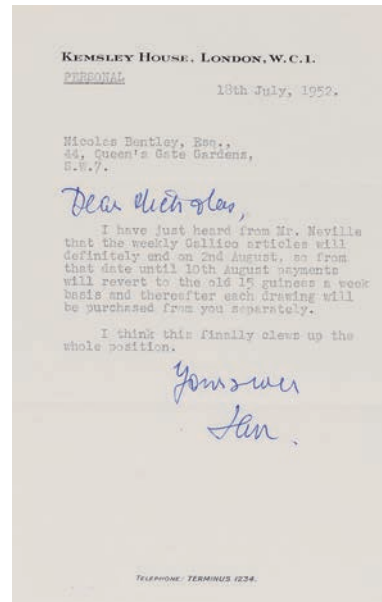 KEMSLEY HOUSE, LONDON, W.C.1.
PERSONAL
18th July, 1952.
Nicolas Bentley, Esq.,
44, Queen's Gate Gardens,
S.W.7.
Dear Nicholas,
I have just heard from Mr. Neville
that the weekly Gallico articles will
definitely end on 2nd August, so from
that date until 10th August payments
will revert to the old 15 guineas a week
basis and thereafter each drawing will
be purchased from you separately.
I think this finally clews up the
whole position.
Yours ever
TELEPHONE: TERMINUS 1234.